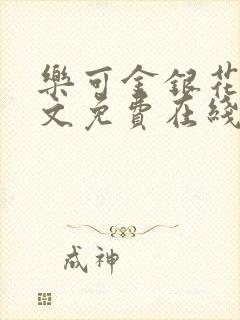 樂可金銀花
文免費在綫
成神